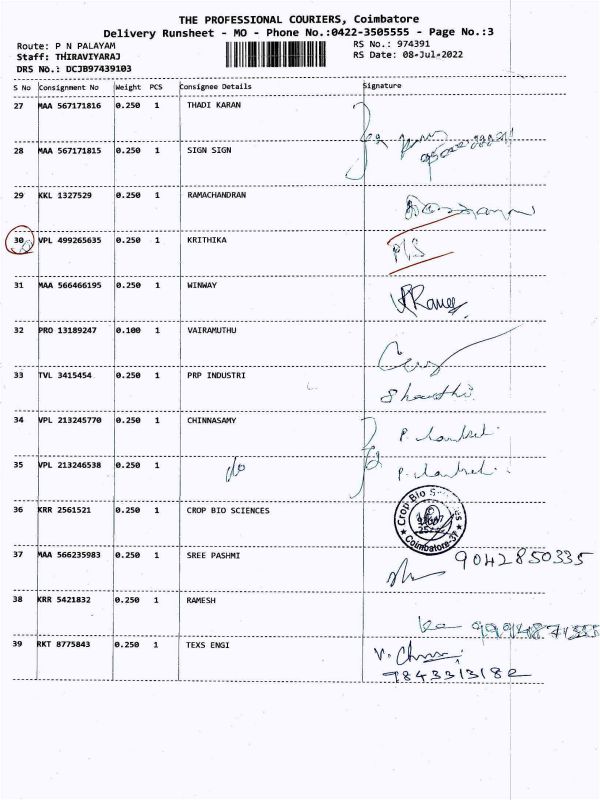 THE PROFESSIONAL COURIERS, Coimbatore
Delivery Runsheet - MO - Phone No.:0422-3505555 - Page No.:3
Route: P N PALAYAM RS No.: 974391
Staff: THIRAVIYARAJ RS Date: 08-Jul-2022
DRS No.: DCJB97439103
S No Consignment No Weight PCS Consignee Details Signature
27 MAA 567171816 0.250 1 THADI KARAN
28 MAA 567171815 0.250 1 SIGN SIGN
29 KKL 1327529 0.250 1 RAMACHANDRAN
30 VPL 499265635 0.250 1 KRITHIKA P/S
31 MAA 566466195 0.250 1 WINWAY
32 PRO 13189247 0.100 1 VAIRAMUTHU
33 TVL 3415454 0.250 1 PRP INDUSTRI Shanthi
34 VPL 213245770 0.250 1 CHINNASAMY
35 VPL 213246538 0.250 1 do
36 KRR 2561521 0.250 1 CROP BIO SCIENCES Crop Bio Sciences Coimbatore-37
37 MAA 566235983 0.250 1 SREE PASHMI 9042850335
38 KRR 5421832 0.250 1 RAMESH
39 RKT 8775843 0.250 1 TEXS ENGI
9843313182